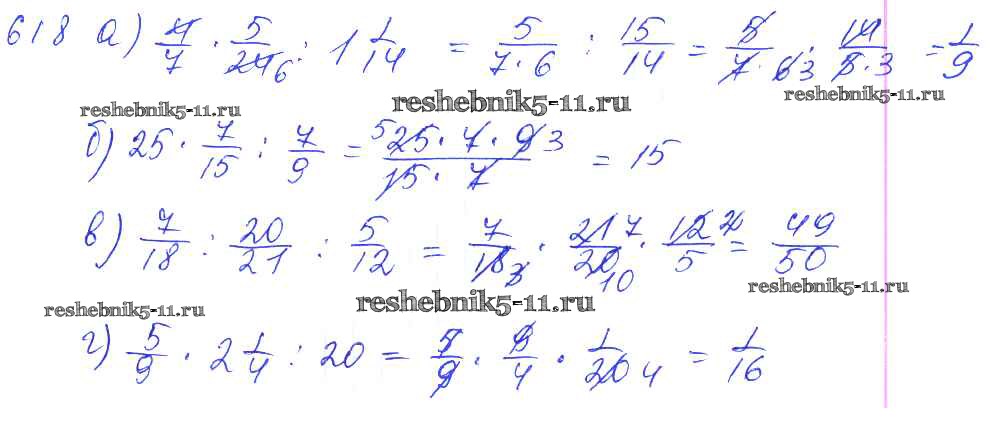 618 а) 4/7 · 5/24 6 : 1 1/14 = 5/(7·6) : 15/14 = 5/(7·6 3) · 14/(5·3) = 1/9
reshebnik5-11.ru reshebnik5-11.ru reshebnik5-11.ru
б) 25 · 7/15 : 7/9 = 5 (25·7·9 3)/(15·7) = 15
в) 7/18 : 20/21 : 5/12 = 7/18 3 · 21 7/20 10 · 12 2/5 = 49/50
reshebnik5-11.ru reshebnik5-11.ru reshebnik5-11.ru
г) 5/9 · 2 1/4 : 20 = 5/9 · 9/4 · 1/20 4 = 1/16